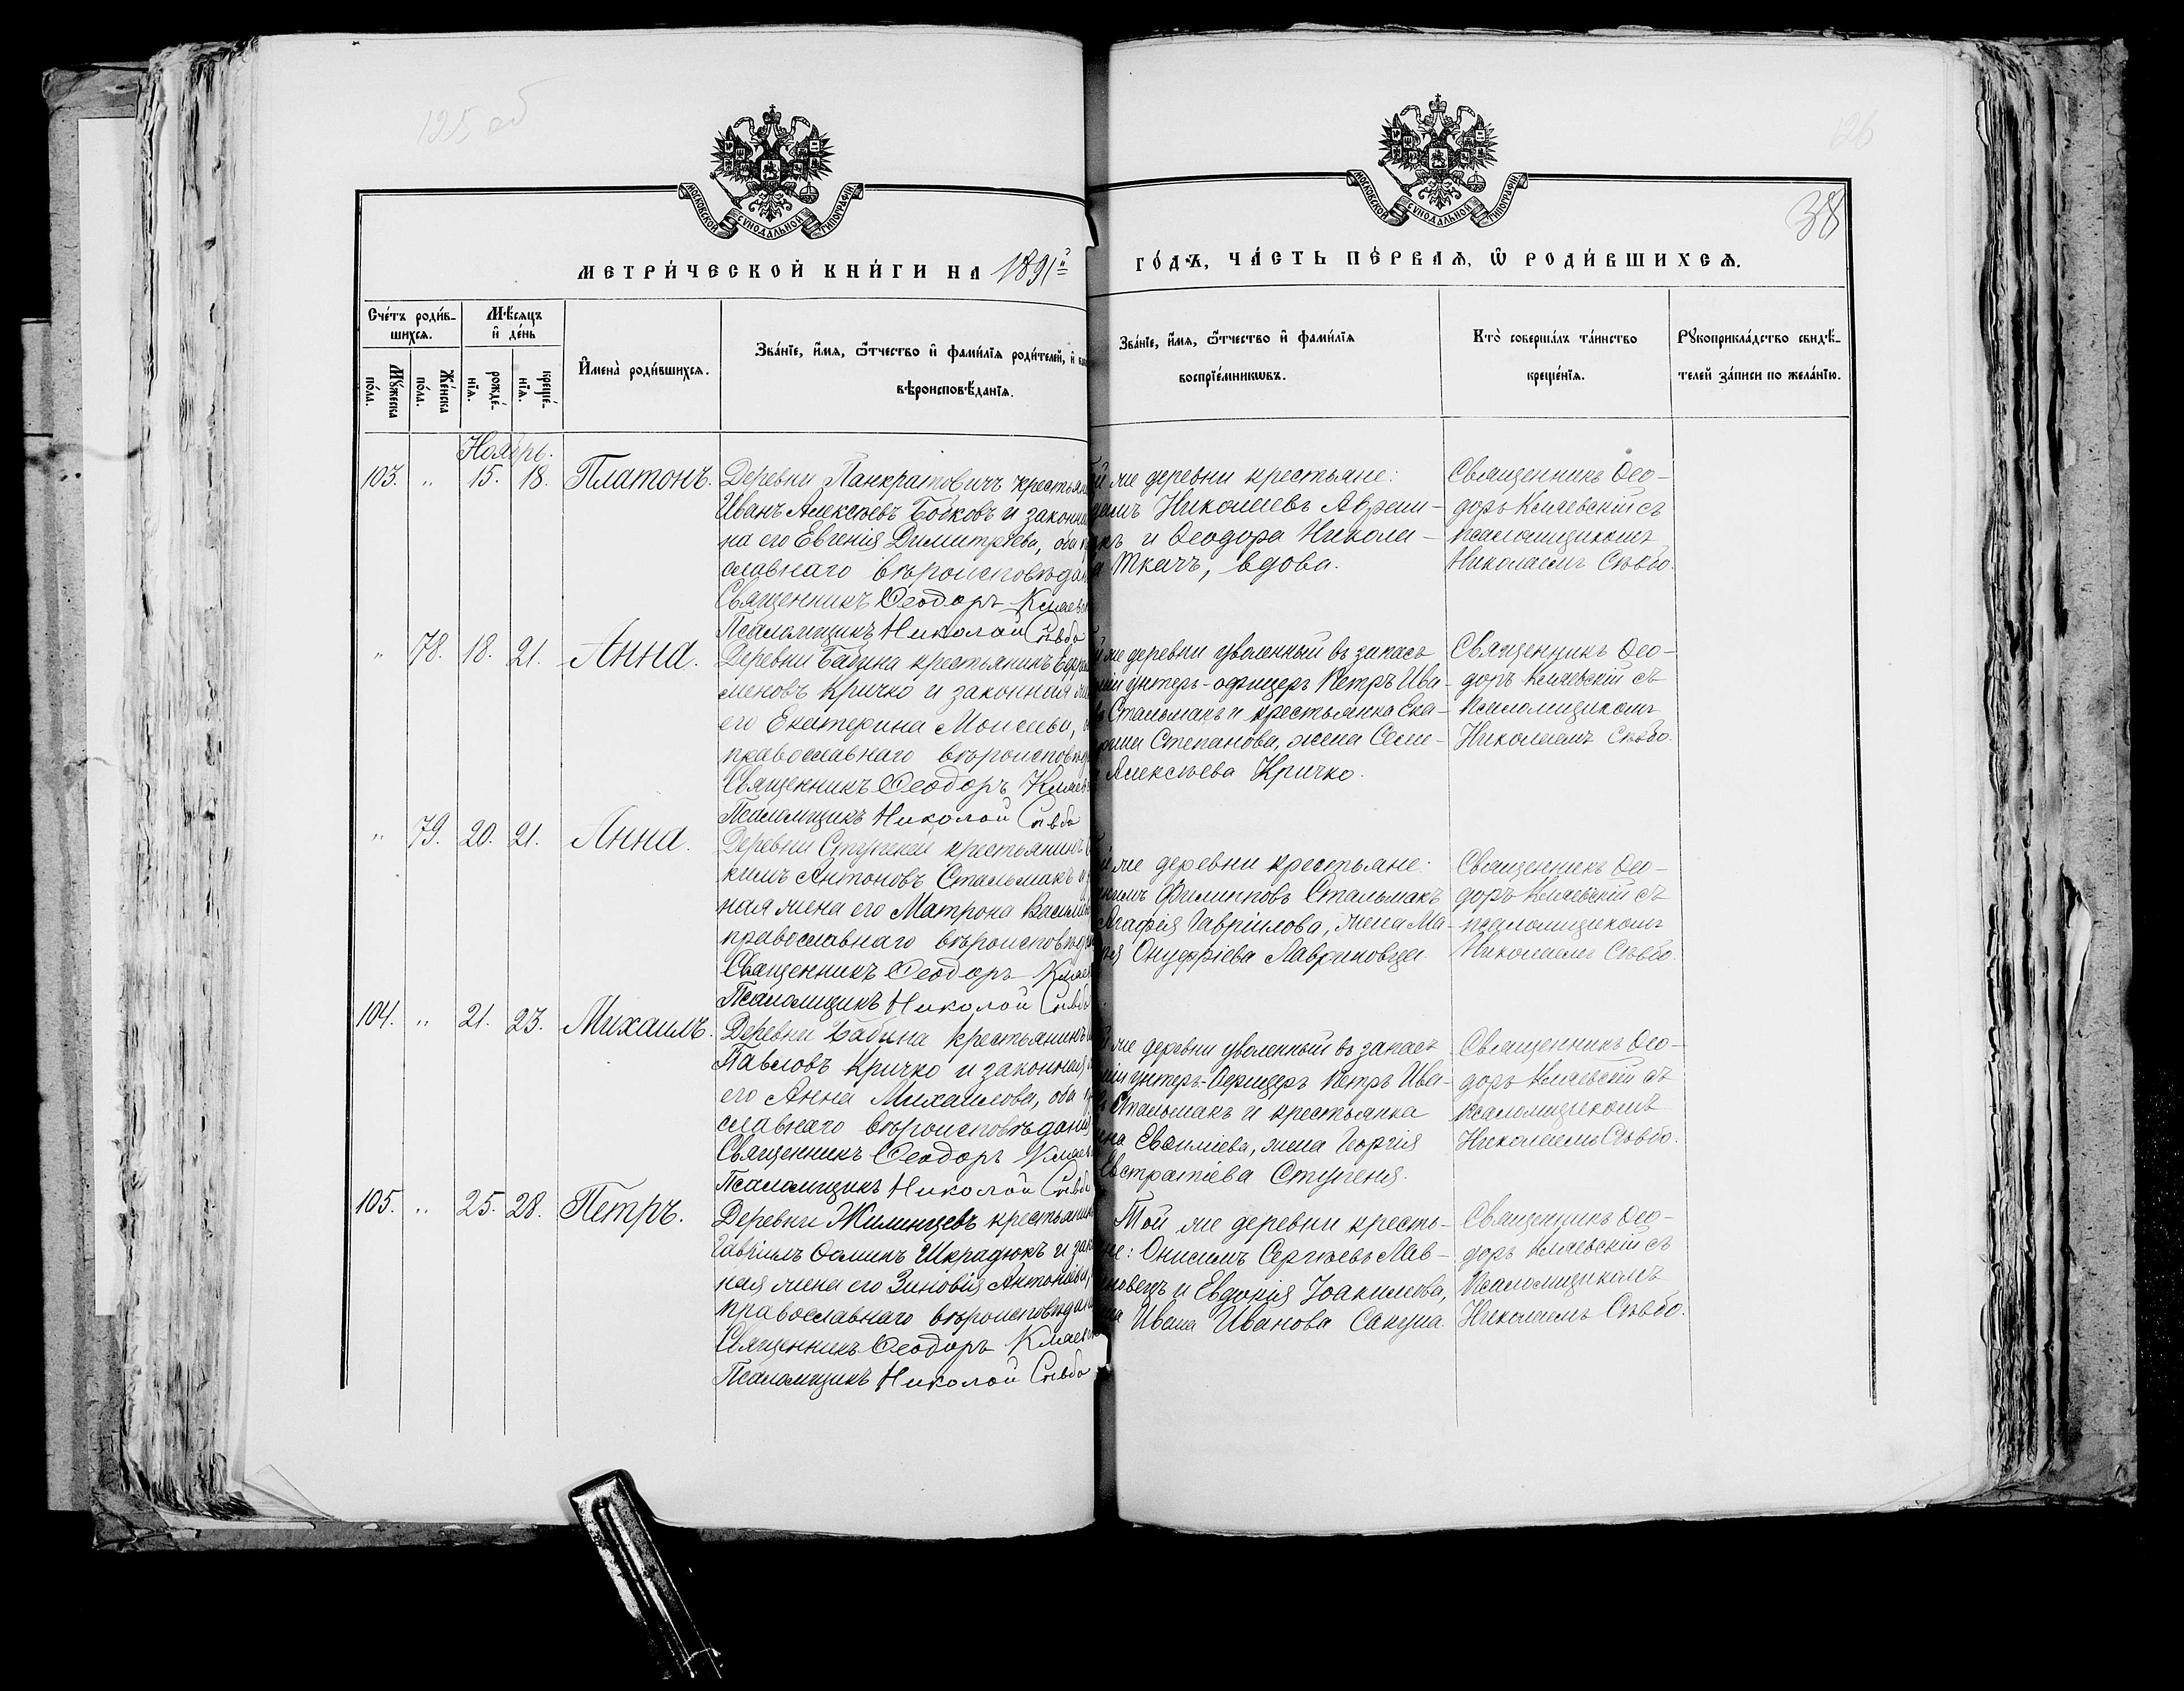 125 об
126
38
МОСКОВСКОЙ СУНОДАЛЬНОЙ ТИПОГРАФІИ
МОСКОВСКОЙ СУНОДАЛЬНОЙ ТИПОГРАФІИ
МЕТРИ́ЧЕСКОЙ КНИ́ГИ НА 1891й
ГО́ДЪ, ЧА́СТЬ ПЕ́РВАѦ, Ѿ РОДИ́ВШИХСѦ.
Сче́тъ роди́в-
шихсѧ.
Мꙋжеска по́ла.
Же́нска по́ла.
Мѣ́сѧцъ
и҆ де́нь
рожде́-
нїѧ.
креще́-
нїѧ.
И҆мена̀ роди́вшихсѧ.
Зва́нїе, и҆́мѧ, ѻ҆́тчество и҆ фами́лїѧ роди́телей, и҆
вѣроисповѣ́данїѧ.
Зва́нїе, и҆́мѧ, ѻ҆́тчество и҆ фами́лїѧ
воспрїе́мникѡвъ.
Кто̀ соверша́лъ та́инство
креще́нїѧ.
Рꙋкоприкла́дство свидѣ́-
телей за́писи по жела́нїю.
Ноябрь.
103. " 15. 18. Платонъ.
Деревни Панкратовичъ крестьян
Иванъ Алексѣевъ Бойковъ и законна
на его Евгенія Димитріева, оба п
славнаго вѣроисповѣдан
Священникъ Ѳеодоръ Кмаевск
Псаломщикъ Николай Сѣвбо
й же деревни крестьяне:
Николаевъ Абрам-
къ и Ѳеодора Никола-
а Ткачъ, вдова.
Священникъ Ѳео-
доръ Клаевскій съ
псаломщикомъ
Николаемъ Сѣвбо.
" 78. 18. 21. Анна.
Деревни Бабина крестьянинъ Ефр
меновъ Кричко и законная же
его Екатерина Моисеева, о
православнаго вѣроисповѣд
Священникъ Ѳеодоръ Клаев
Псаломщикъ Николай Сѣвбо
й же деревни уволенный въ запасъ
міи унтеръ-офицеръ Петръ Ива-
ъ Стальмакъ и крестьянка Ека-
рина Степанова, жена Семе-
Алексѣева Кричко.
Священникъ Ѳео-
доръ Клаевскій съ
Псаломщикомъ
Николаемъ Сѣвбо.
" 79. 20. 21. Анна.
Деревни Ступеней крестьянинъ
кимъ Антоновъ Стальмакъ и з
ная жена его Матрона Василь
православнаго вѣроисповѣда
Священникъ Ѳеодоръ Клаев
Псаломщикъ Николай Сѣвбо
й же деревни крестьяне:
кимъ Филипповъ Стальмакъ
Агафія Гавріилова, жена Ма-
ѳія Онуфріева Лавриновца.
Священникъ Ѳео-
доръ Клаевскій съ
псаломщикомъ
Николаемъ Сѣвбо.
104. " 21. 23. Михаилъ.
Деревни Бабина крестьянинъ
Павловъ Кричко и законная ж
его Анна Михаилова, оба пр
славнаго вѣроисповѣданія
Священникъ Ѳеодоръ Клаев
Псаломщикъ Николай Сѣвбо
й же деревни уволенный въ запасъ
міи унтеръ-Офицеръ Петръ Ива-
ъ Стальмакъ и крестьянка
на Евѳиміева, жена Георгія
Евстратіева Ступеня.
Священникъ Ѳео-
доръ Клаевскій съ
псаломщикомъ
Николаемъ Сѣвбо.
105. " 25. 28. Петръ.
Деревни Жилинцевъ крестьянин
Гавріилъ Ѳоминъ Шкрадюкъ и зак
ная жена его Зиновія Антоніева,
православнаго вѣроисповѣдан
Священникъ Ѳеодоръ Клаевск
Псаломщикъ Николай Сѣвбо
Той же деревни кресть-
не: Онисимъ Сергѣевъ Лав-
новецъ и Евдокія Іоакимова,
на Ивана Иванова Сакуна.
Священникъ Ѳео-
доръ Клаевскій съ
Псаломщикомъ
Николаемъ Сѣвбо.